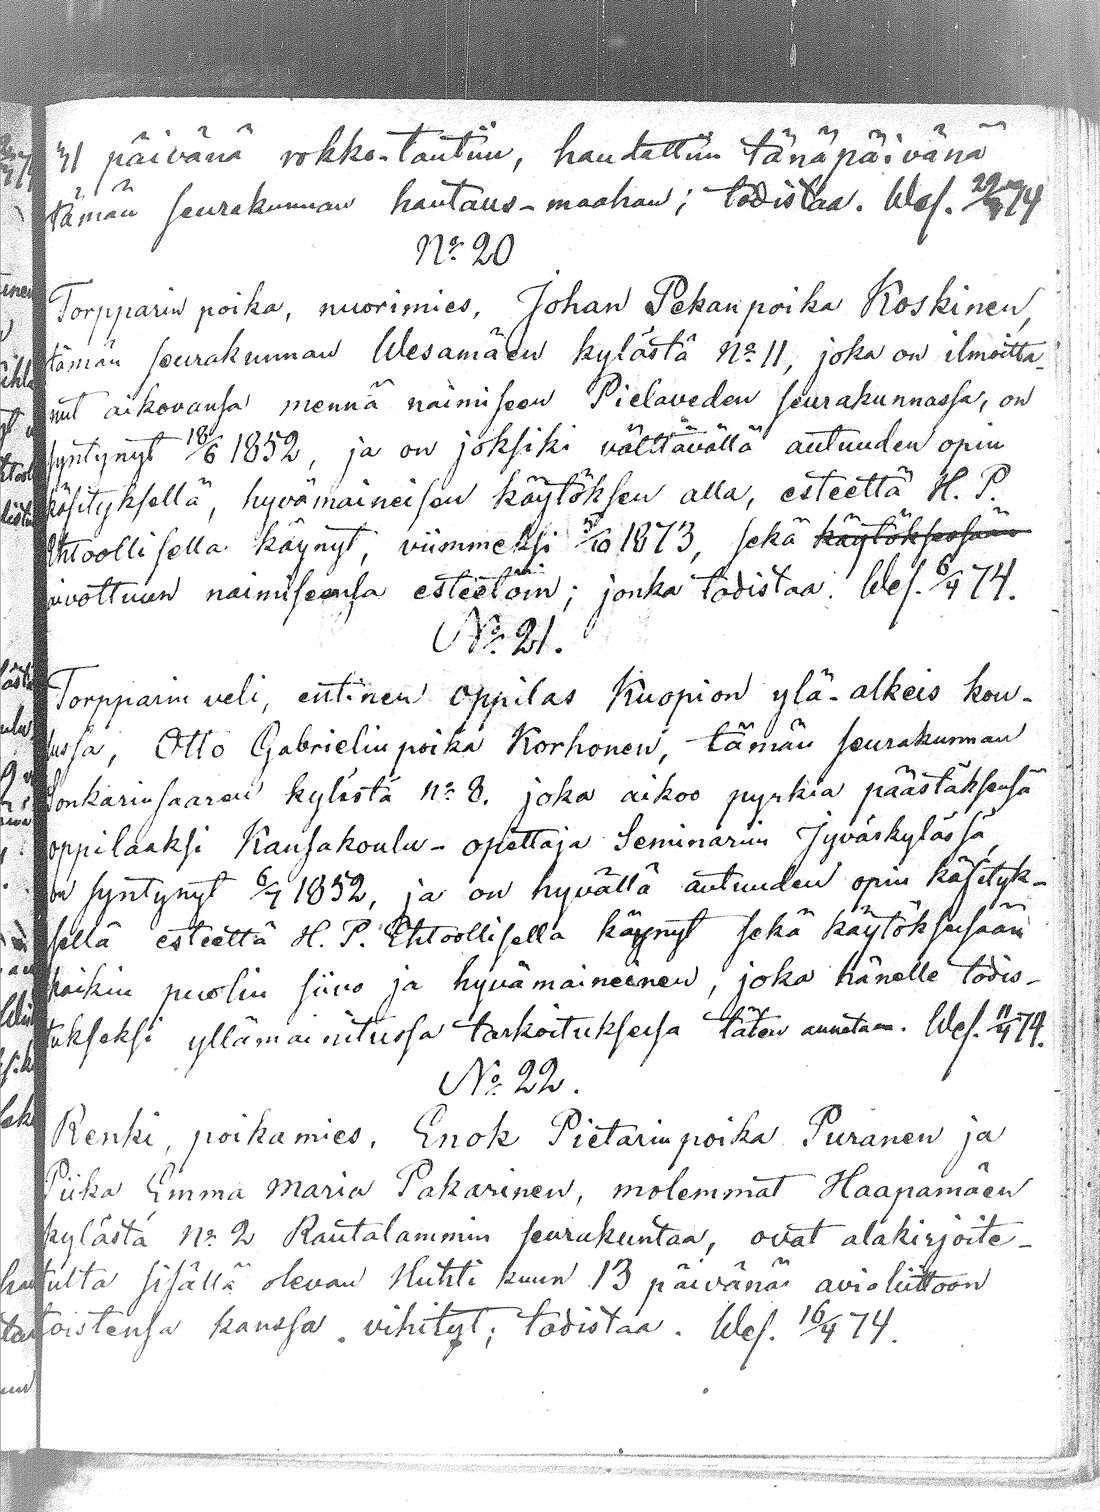 21 päivänä rokko-tautiin, haudattiin tänäpäivänä
tämän seurakunnan hautaus-maahan; todistaa. Wes. 74
No 20
Torpparin poika, nuorimies, Johan Pekanpoika Koskinen,
tämän seurakunnan Wesamäen kylästä No 11, joka on ilmoitta-
nut aikovansa mennä naimiseen Pielaveden seurakunnassa, on
syntynyt 18/6 1852, ja on joksiki välttävällä autuuden opin
käsityksellä, hyvämaineisen käytöksen alla, esteettä H. P.
Ehtoollisella käynyt, viimmeksi /10 1873, sekä käytöksessään
avottuun naimiseensa esteetöin; jonka todistaa. Wes. 6/4 74.
No 21.
Torpparin veli, entinen oppilas Kuopion ylä-alkeis kou-
lussa, Otto Gabrielin poika Korhonen, tämän seurakunnan
Sonkarinsaaren kylästä No 8. joka aikoo pyrkiä päästäksensä
oppilaaksi Kansakoulu-opettaja Seminariin Jyväskylässä,
on syntynyt 6/7 1852, ja on hyvällä autuuden opin käsityk-
sellä esteettä H. P. Ehtoollisella käynyt sekä käytöksensään
kaikin puolin siivo ja hyvämaineinen, joka hänelle todis-
tukseksi yllämainitussa tarkoituksessa täten annetaan. Wes. 11/4 74.
No 22.
Renki, poikamies, Enok Pietarin poika Puranen ja
Piika Emma Maria Pakarinen, molemmat Haapamäen
kylästä No 2 Rautalammin seurakuntaa, ovat alakirjoite-
tulta sisällä olevan Huhti kuun 13 päivänä avioliittoon
toistensa kanssa vihityt; todistaa. Wes. 16/4 74.